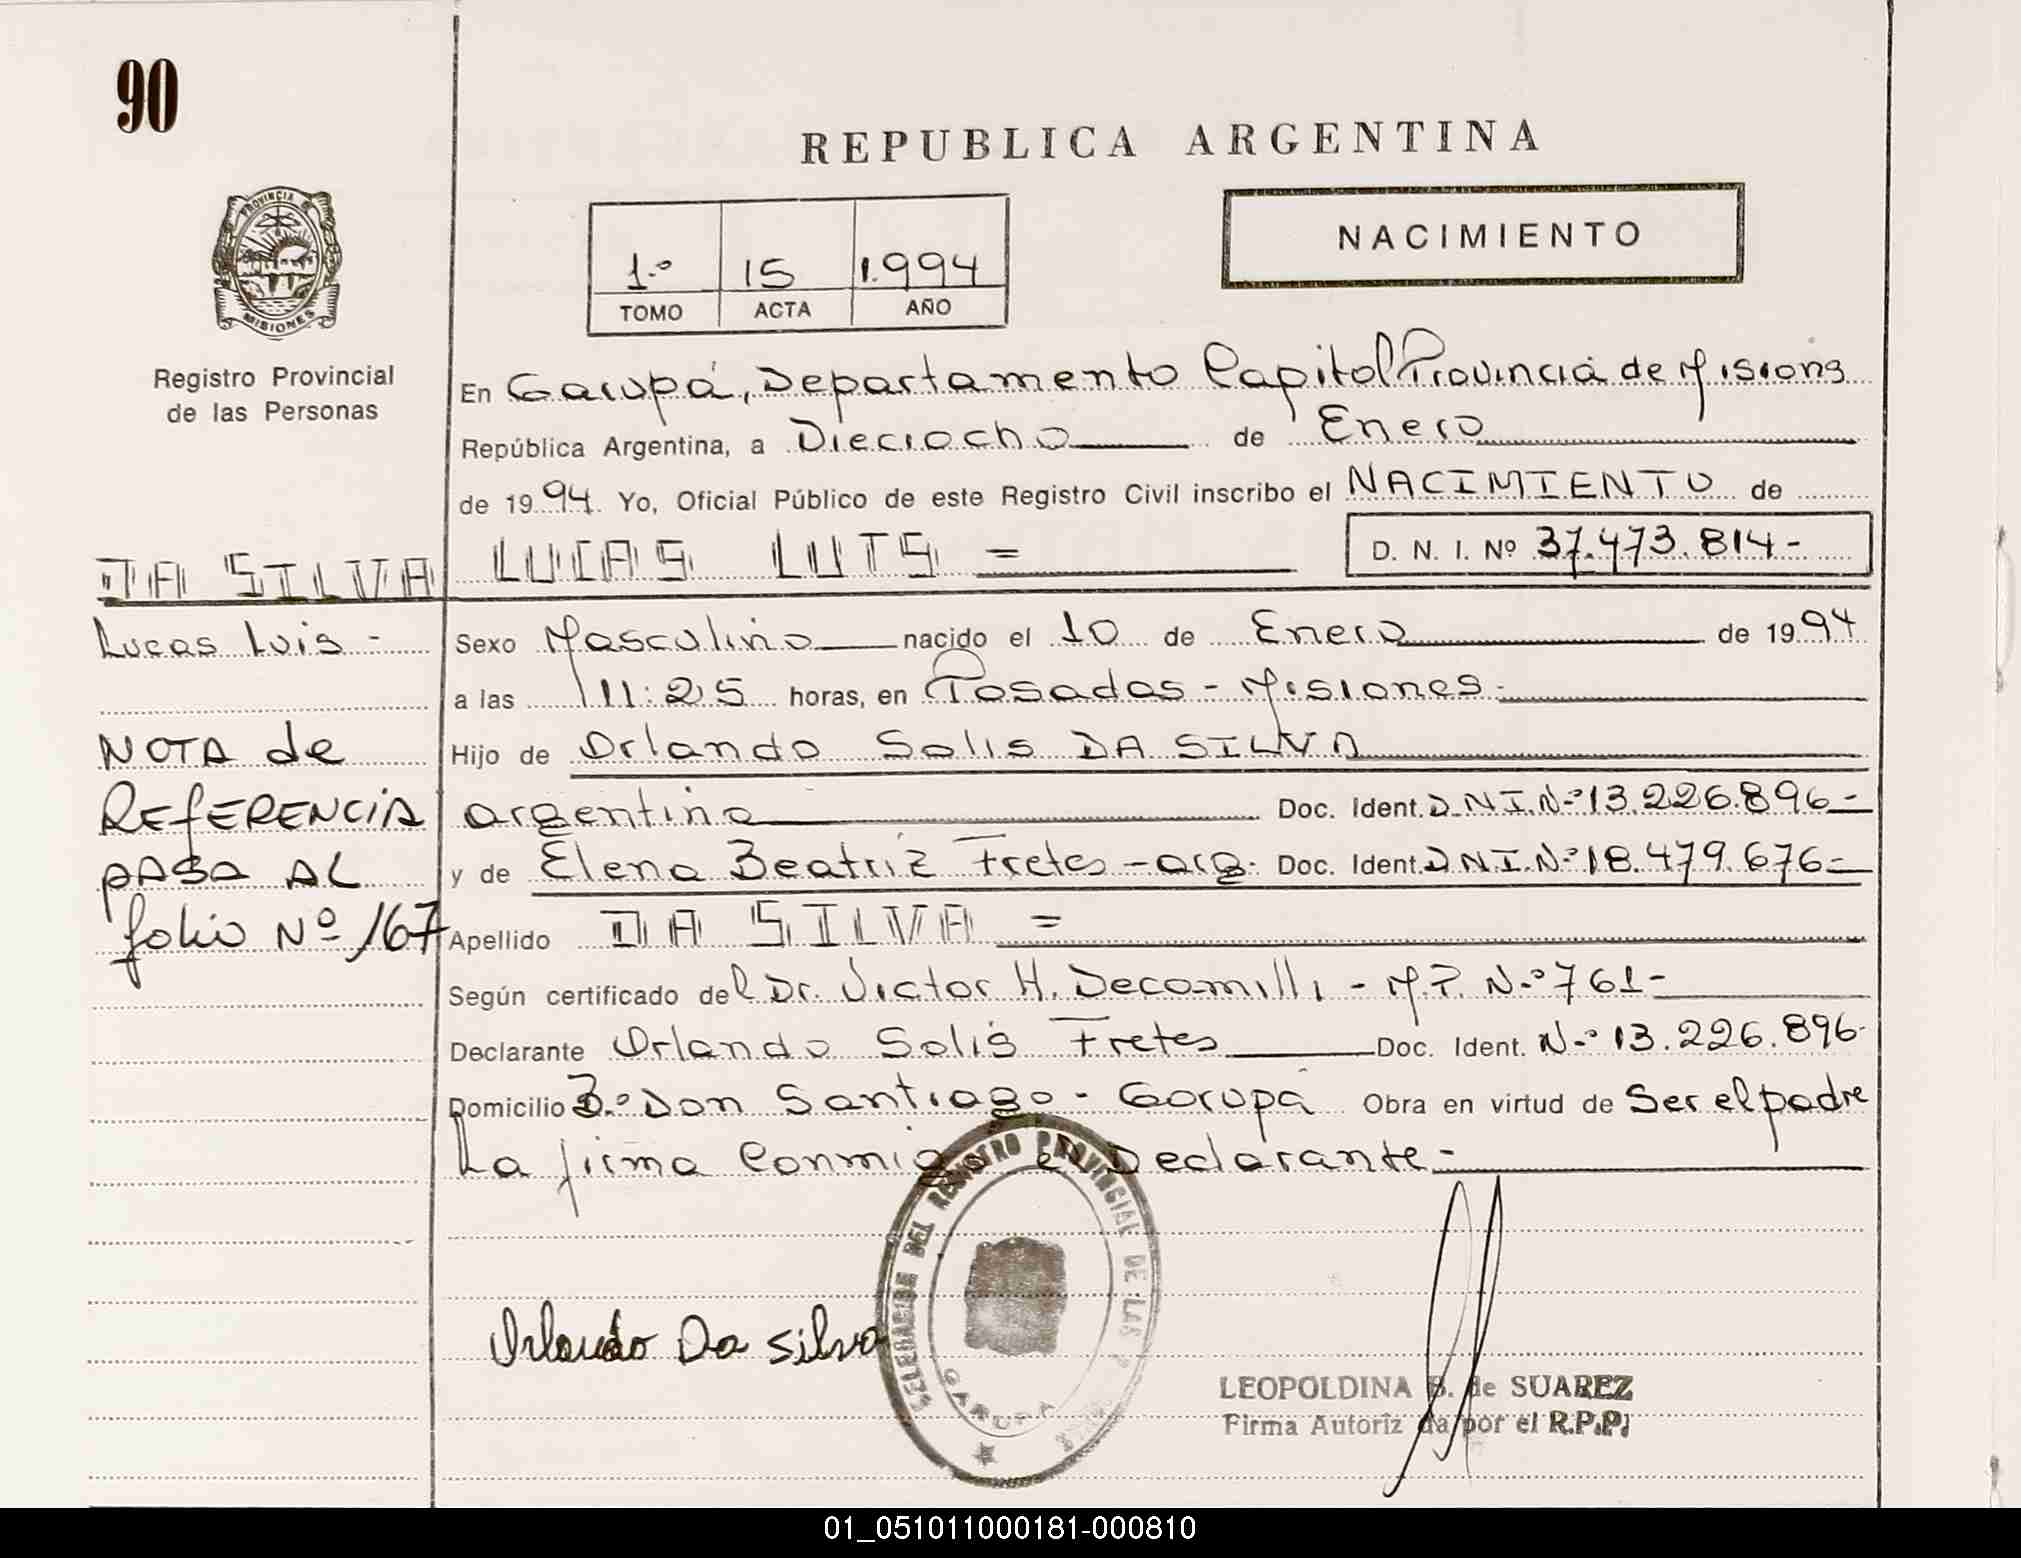 90
REPUBLICA ARGENTINA
PROVINCIA
MISIONES
Registro Provincial
de las Personas
1.º 15 1.994
TOMO ACTA AÑO
NACIMIENTO
En Garupá, Departamento Capital Provincia de Misions
República Argentina, a Dieciocho de Enero
de 1994. Yo, Oficial Público de este Registro Civil inscribo el NACIMIENTO de
DA SILVA LUCAS LUIS = D. N. I. Nº 37.473.814-
Lucas Luis -
Sexo Masculino nacido el 10 de Enero de 1994
a las 11:25 horas, en Posadas - Misiones-
NOTA de
REFERENCIA
PASA AL
folio Nº 167
Hijo de Orlando Solis DA SILVA
argentino Doc. Ident. D.N.I.N.º 13.226.896-
y de Elena Beatriz Fretes - arg. Doc. Ident. D.N.I.N.º 18.479.676-
Apellido DA SILVA =
Según certificado del Dr. Victor H. Decamilli - M.P. N.º 761-
Declarante Orlando Solis Fretes Doc. Ident. N.º 13.226.896-
Domicilio B.º Don Santiago - Garupá Obra en virtud de Ser el padre
La firma Conmigo el Declarante-
DELEGACION DEL REGISTRO PROVINCIAL DE LAS P
GARUPA
Orlando Da Silva
LEOPOLDINA B. de SUAREZ
Firma Autoriz da por el R.P.P.
01_051011000181-000810